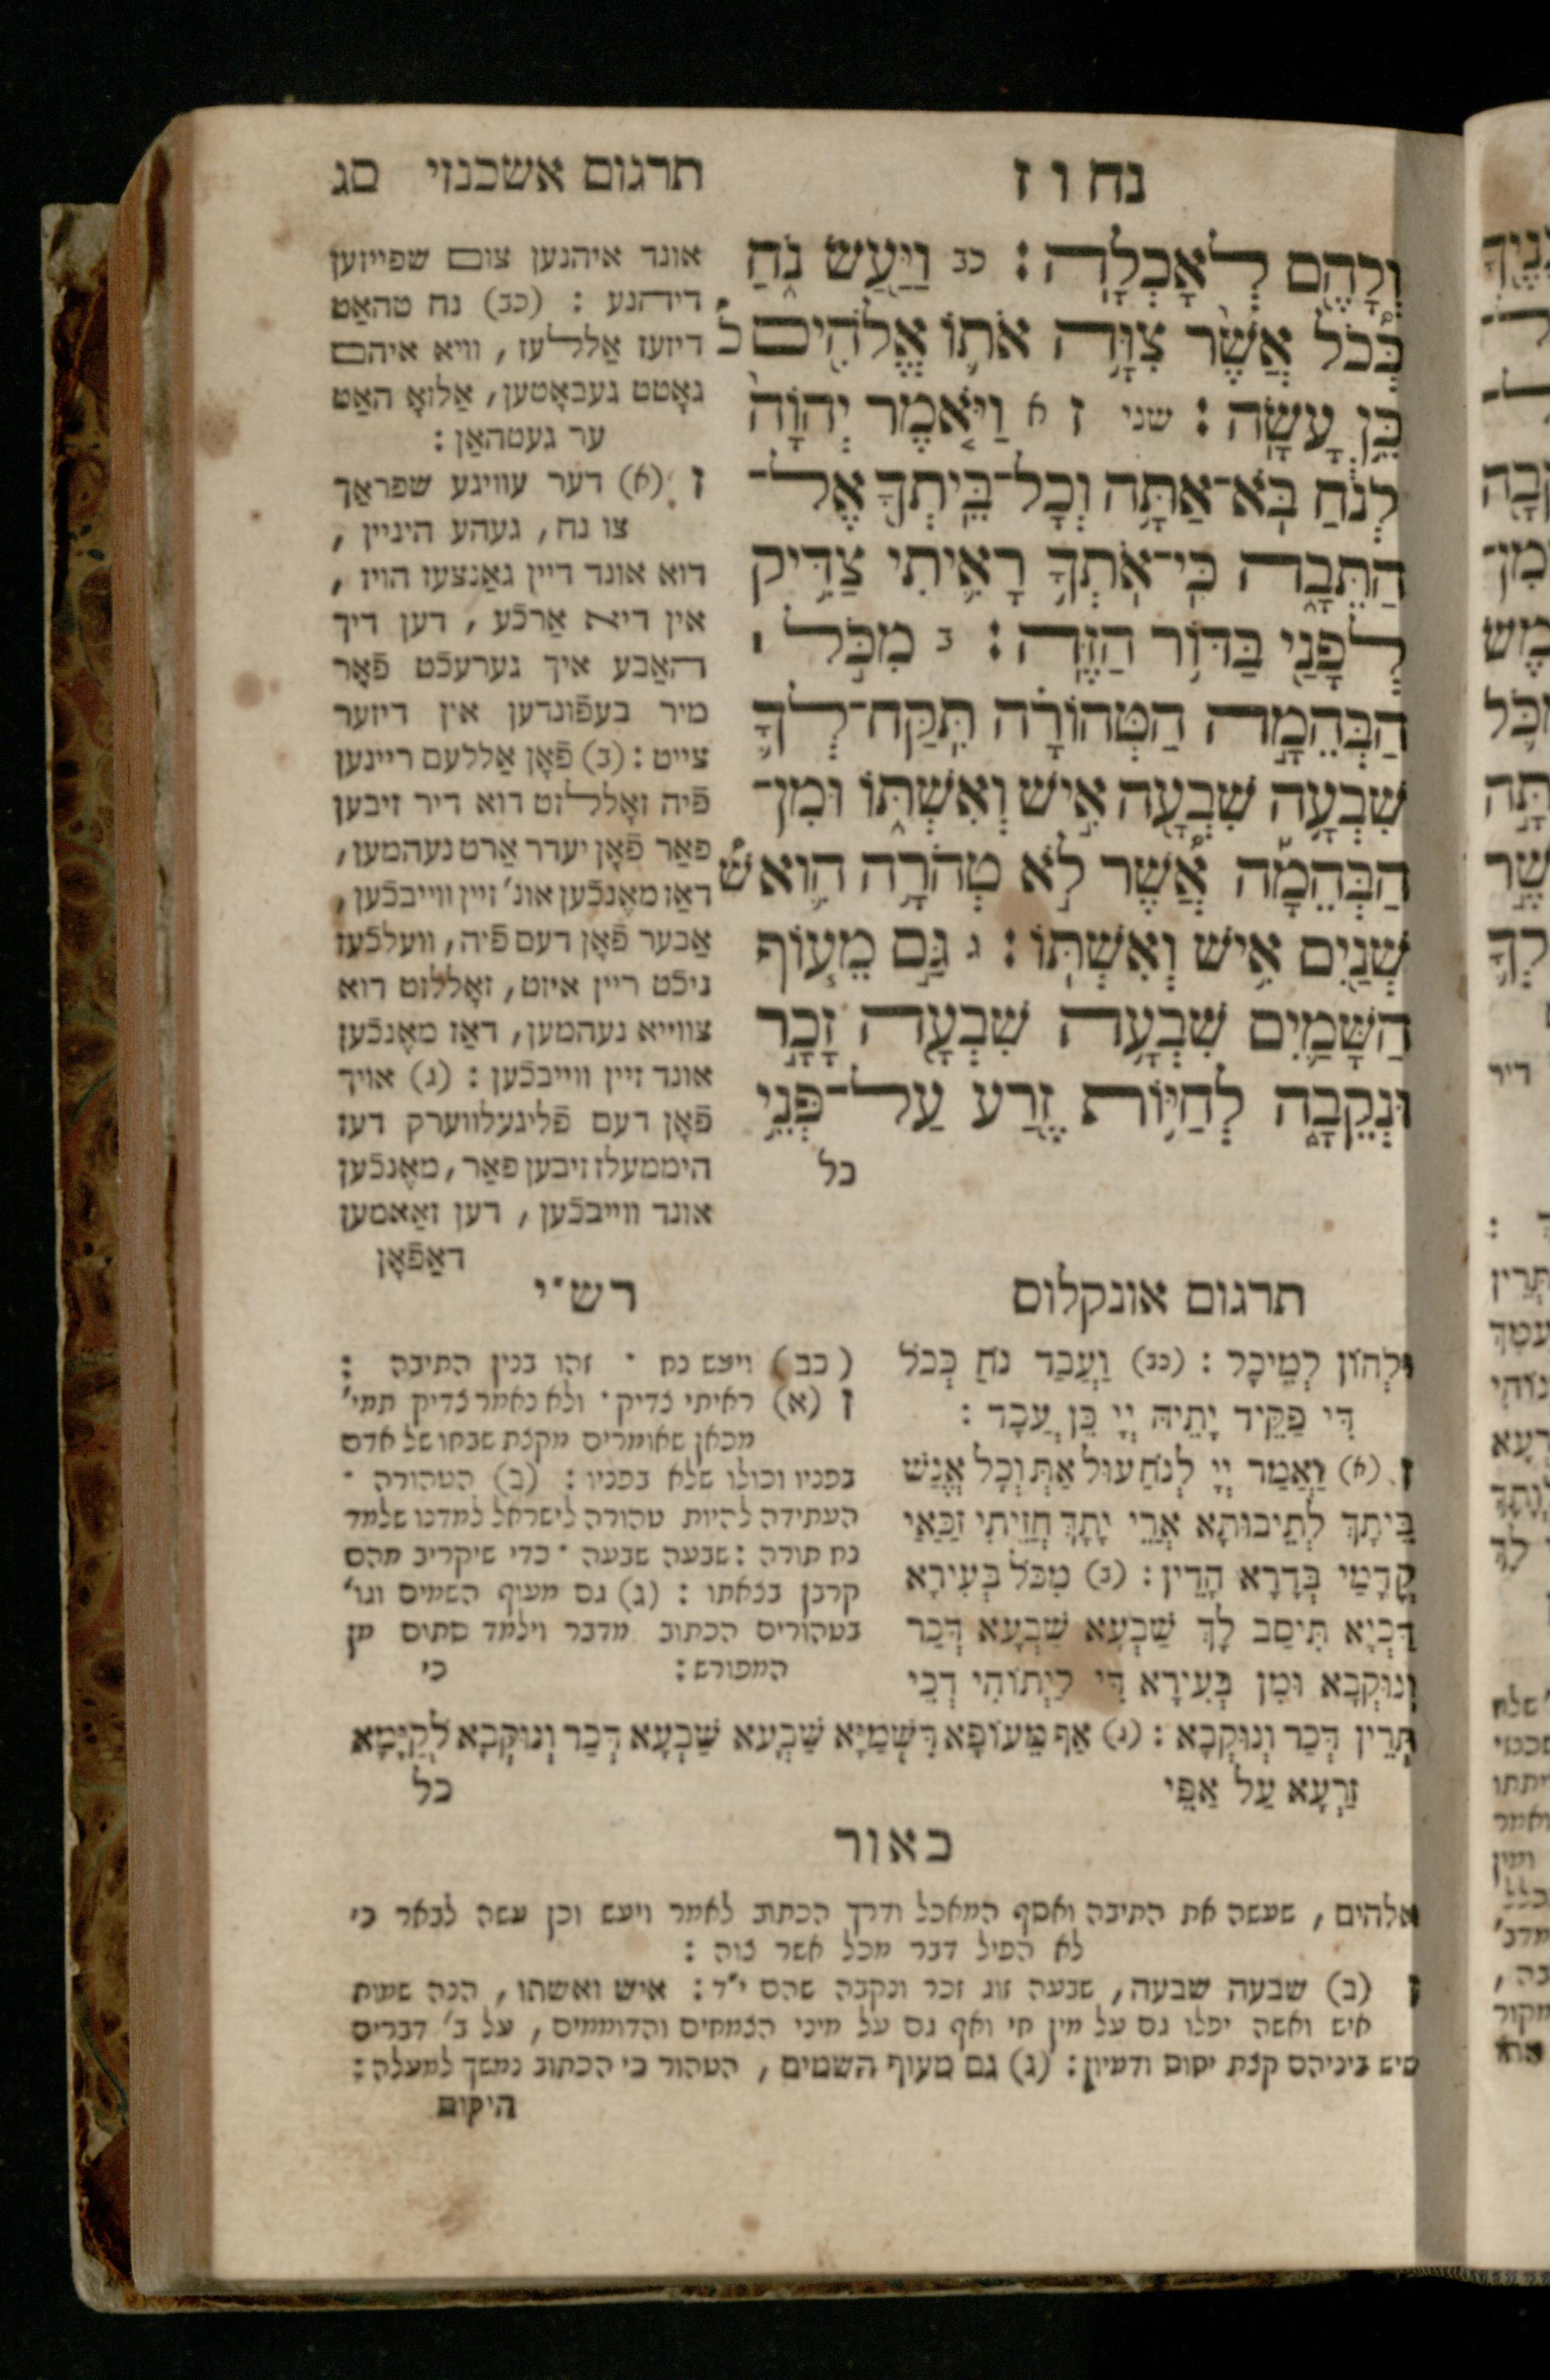 נח ו ז
תרגום אשכנזי סג
וְלָהֶ֖ם לְאָכְלָֽה׃ כב וַיַּ֖עַשׂ נֹ֑חַ
כְּ֠כֹל אֲשֶׁ֨ר צִוָּ֥ה אֹת֛וֹ אֱלֹהִ֖ים
כֵּ֥ן עָשָֽׂה׃ שני ז א וַיֹּ֤אמֶר יְהוָֹה֙
לְנֹ֔חַ בֹּֽא־אַתָּ֥ה וְכָל־בֵּֽיתְךָ֖ אֶל־
הַתֵּבָ֑ה כִּֽי־אֹֽתְךָ֥ רָאִ֛יתִי צַדִּ֥יק
לְפָנַ֖י בַּדּ֥וֹר הַזֶּֽה׃ ב מִכֹּ֣ל ׀
הַבְּהֵמָ֣ה הַטְּהוֹרָ֗ה תִּֽקַּח־לְךָ֛
שִׁבְעָ֥ה שִׁבְעָ֖ה אִ֣ישׁ וְאִשְׁתּ֑וֹ וּמִן־
הַבְּהֵמָ֡ה אֲ֠שֶׁר לֹ֣א טְהֹרָ֥ה הִ֛וא
שְׁנַ֖יִם אִ֥ישׁ וְאִשְׁתּֽוֹ׃ ג גַּ֣ם מֵע֧וֹף
הַשָּׁמַ֛יִם שִׁבְעָ֥ה שִׁבְעָ֖ה זָכָ֣ר
וּנְקֵבָ֑ה לְחַיּ֥וֹת זֶ֖רַע עַל־פְּנֵ֥י
כל
אונד איהנען צום שפייזען
דיהנע : (כב) נח טהאַט
דיזעז אַללעז, וויא איהם
גאָטט געבאָטען, אַלזאָ האַט
ער געטהאַן :
ז (א) דער עוויגע שפראַך
צו נח, געהע היניין ,
דוא אונד דיין גאַנצעז הויז ,
אין דיא אַרכֿע , דען דיך
האַבע איך גערעכֿט פֿאָר
מיר בעפֿונדען אין דיזער
צייט : (ב) פֿאָן אַללעם ריינען
פֿיה זאָללזט דוא דיר זיבען
פאַר פֿאָן יעדר אַרט נעהמען,
דאַז מאֶנכֿען אונ' זיין ווייבכֿען,
אַבער פֿאָן דעם פֿיה, וועלכֿעז
ניכֿט ריין איזט, זאָללזט דוא
צווייא נעהמען, דאַז מאֶנכֿען
אונד זיין ווייבכֿען : (ג) אויך
פֿאָן דעם פֿליגעלווערק דעז
היממעלז זיבען פאַר, מאֶנכֿען
אונד ווייבכֿען, דען זאַאמען
דאַפֿאָן
תרגום אונקלוס
וּלְהוֹן לְמֵיכָל : (כב) וַעֲבַד נֹחַ כְּכֹל
דִּי פַקֵּיד יָתֵיהּ יְיָ כֵּן עֲבָד :
ז (א) וַאֲמַר יְיָ לְנֹחַ עוּל אַתְּ וְכָל אֱנַשׁ
בֵּיתָךְ לְתֵיבוּתָא אֲרֵי יָתָךְ חֲזֵיתִי זַכַּאַי
קֳדָמַי בְּדָרָא הָדֵין : (ב) מִכֹּל בְּעִירָא
דַּכְיָא תִּיסַב לָךְ שַׁבְעָא שַׁבְעָא דְּכַר
וְנוּקְבָא וּמִן בְּעִירָא דִּי לַיְתוֹהִי דְכֵי
תְּרֵין דְּכַר וְנוּקְבָא : (ג) אַף מֵעוֹפָא דִשְׁמַיָּא שַׁבְעָא שַׁבְעָא דְּכַר וְנוּקְבָא לְקַיָּמָא
זַרְעָא עַל אַפֵּי
כל
רש"י
(כב) ויעש נח · זהו בנין התיבה :
ז (א) ראיתי צדיק · ולא נאמר צדיק תמי'
מכאן שאומרים מקצת שבחו של אדם
בפניו וכולו שלא בפניו : (ב) הטהורה ·
העתידה להיות טהורה לישראל למדנו שלמד
נח תורה : שבעה שבעה · כדי שיקריב מהם
קרבן בצאתו : (ג) גם מעוף השמים וגו'
בטהורים הכתוב מדבר וילמד סתום מן
המפורש :
כי
באור
אלהים, שעשה את התיבה ואסף המאכל ודרך הכתוב לאמר ויעש וכן עשה לבאר כי
לא הפיל דבר מכל אשר צוה :
ז (ב) שבעה שבעה, שבעה זוג זכר ונקבה שהם י"ד : איש ואשתו, הנה שמות
איש ואשה יפלו גם על מין חי ואף גם על מיני הצמחים והדוממים, על ב' דברים
שיש ביניהם קצת יחוס ודמיון : (ג) גם מעוף השמים, הטהור כי הכתוב נמשך למעלה :
היקום